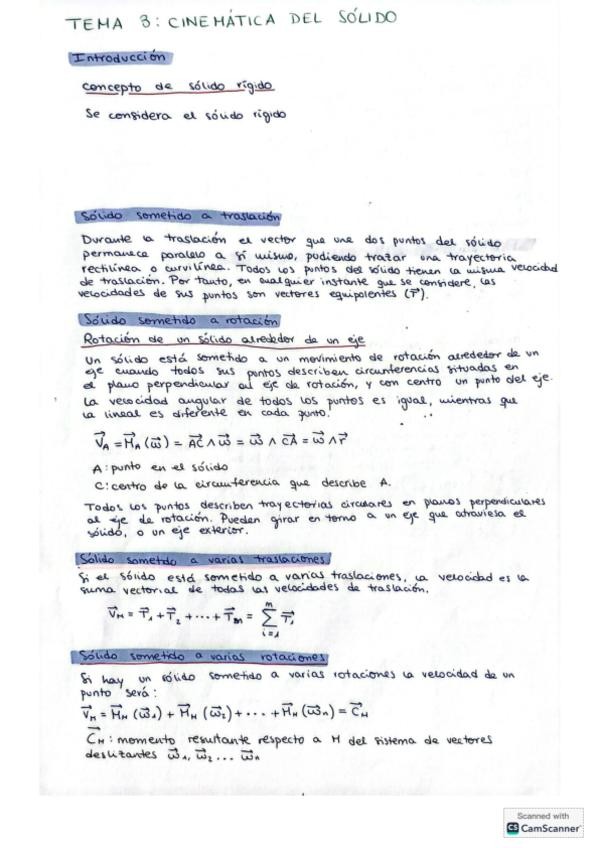 TEMA 3: CINEMÁTICA DEL SÓLIDO
Introducción
Concepto de sólido rígido
Se considera el sólido rígido
Sólido sometido a traslación
Durante la traslación el vector que une dos puntos del sólido
permanece paralelo a sí mismo, pudiendo trazar una trayectoria
rectilínea o curvilínea. Todos los puntos del sólido tienen la misma velocidad
de traslación. Por tanto, en cualquier instante que se considere, las
velocidades de sus puntos son vectores equipolentes (T⃗).
Sólido sometido a rotación
Rotación de un sólido alrededor de un eje
Un sólido está sometido a un movimiento de rotación alrededor de un
eje cuando todos sus puntos describen circunferencias situadas en
el plano perpendicular al eje de rotación, y con centro un punto del eje.
La velocidad angular de todos los puntos es igual, mientras que
la lineal es diferente en cada punto.
V⃗A = M⃗A (ω⃗) = AC⃗ ∧ ω⃗ = ω⃗ ∧ CA⃗ = ω⃗ ∧ r⃗
A: punto en el sólido
C: centro de la circunferencia que describe A.
Todos los puntos describen trayectorias circulares en planos perpendiculares
al eje de rotación. Pueden girar en torno a un eje que atraviesa el
sólido, o un eje exterior.
Sólido sometido a varias traslaciones
Si el sólido está sometido a varias traslaciones, la velocidad es la
suma vectorial de todas las velocidades de traslación.
V⃗M = T⃗1 + T⃗2 + ... + T⃗m = Σ(i=1, m) T⃗i
Sólido sometido a varias rotaciones
Si hay un sólido sometido a varias rotaciones la velocidad de un
punto será:
V⃗M = M⃗M (ω⃗1) + M⃗M (ω⃗2) + ... + M⃗M (ω⃗n) = C⃗M
C⃗M: momento resultante respecto a M del sistema de vectores
deslizantes ω⃗1, ω⃗2 ... ω⃗n
Scanned with
CS CamScanner